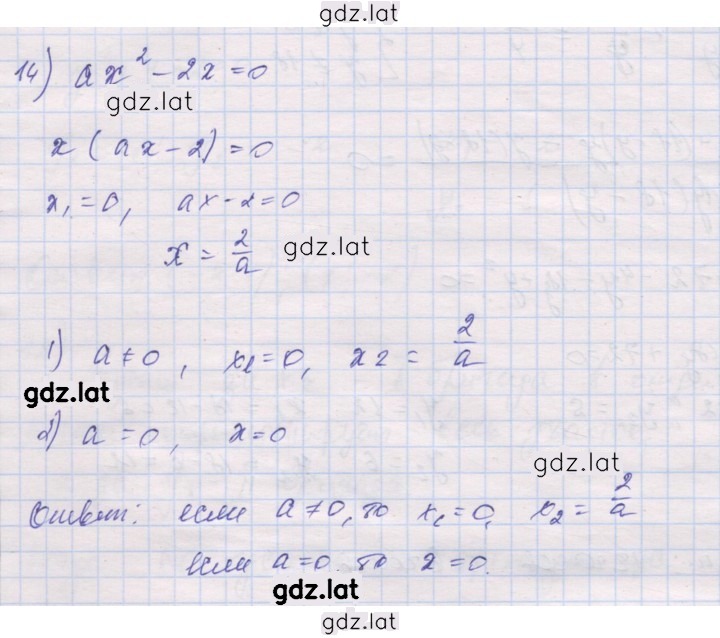 gdz.lat
14) ax² - 2x = 0
gdz.lat
x (ax - 2) = 0
x₁ = 0, ax - 2 = 0
x = 2/a gdz.lat
1) a ≠ 0, x₁ = 0, x2 = 2/a
gdz.lat
2) a = 0, x = 0
gdz.lat
Ответ: если a ≠ 0, то x₁ = 0, x₂ = 2/a
если a = 0 то x = 0.
gdz.lat
gdz.lat